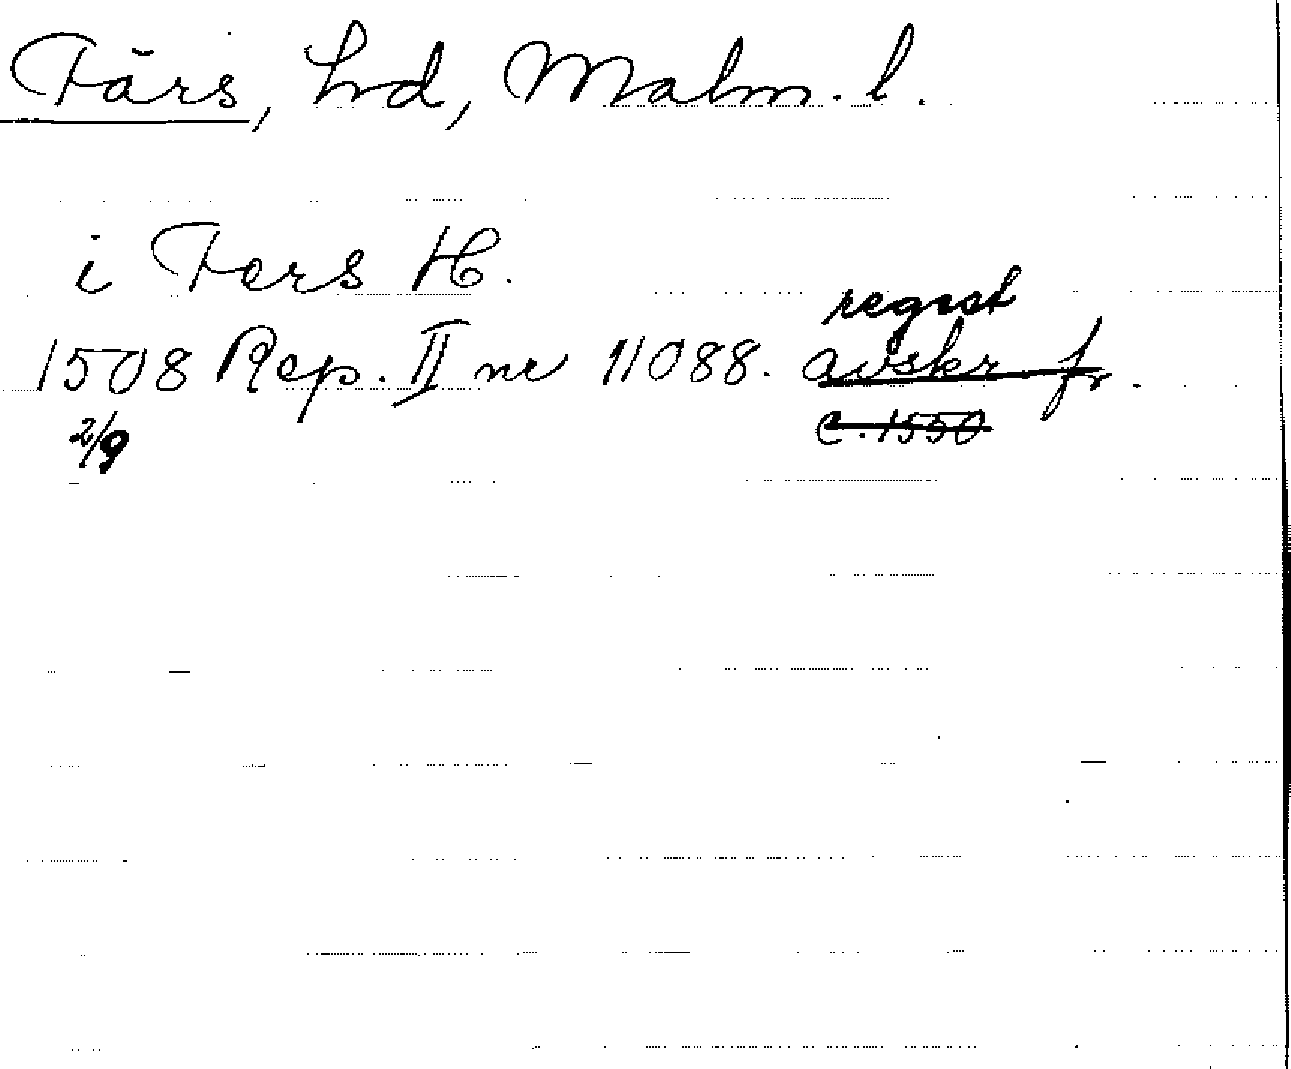 Färs, hd, Malm. l.
i Fers H.
regist
1508 Rep. II nr 11088. avskr fr.
2/9 c. 1550